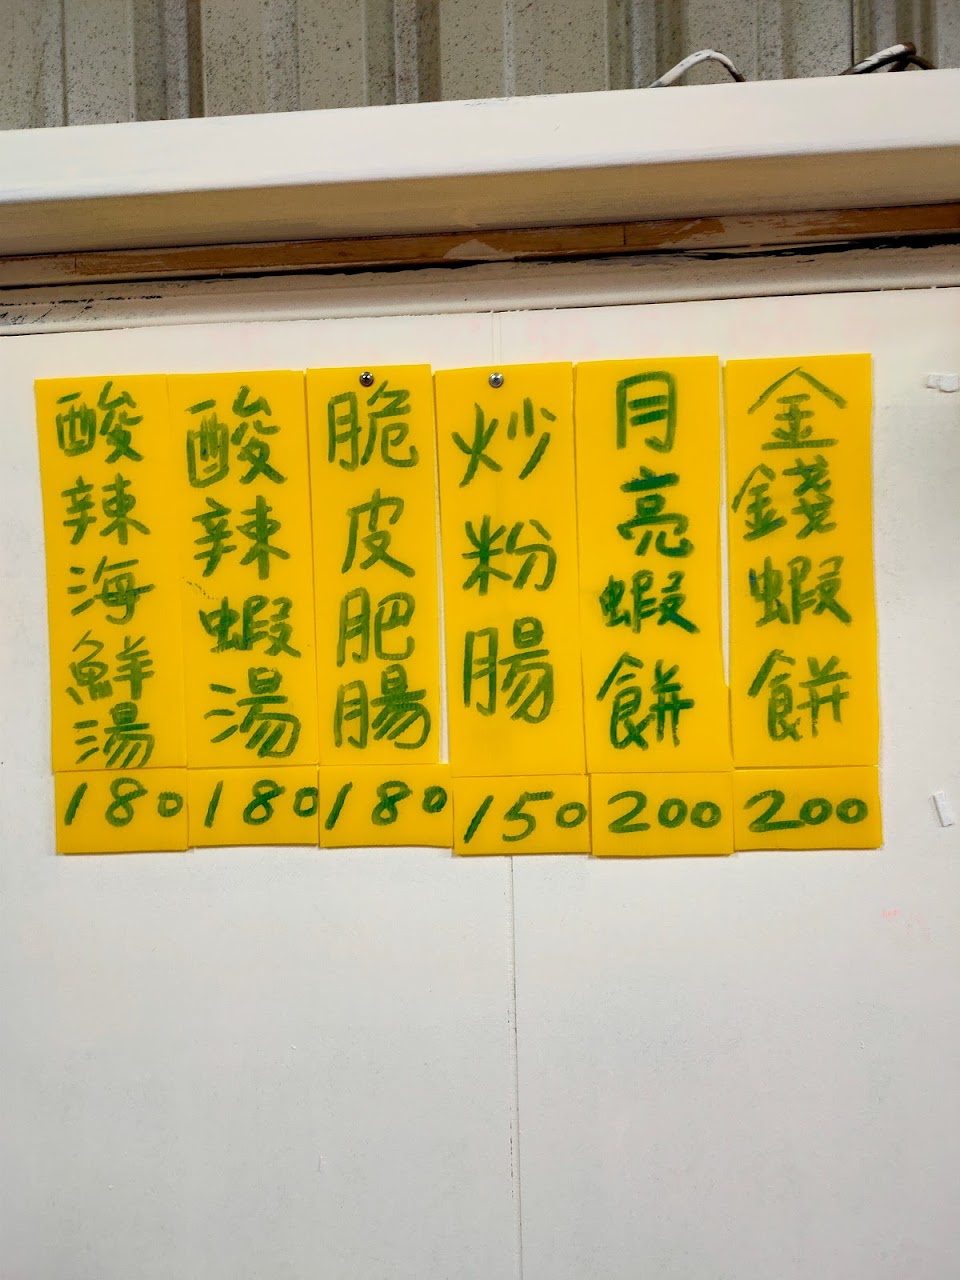 金錢蝦餅
200
月亮蝦餅
200
炒粉腸
150
脆皮肥腸
180
酸辣蝦湯
180
酸辣海鮮湯
180